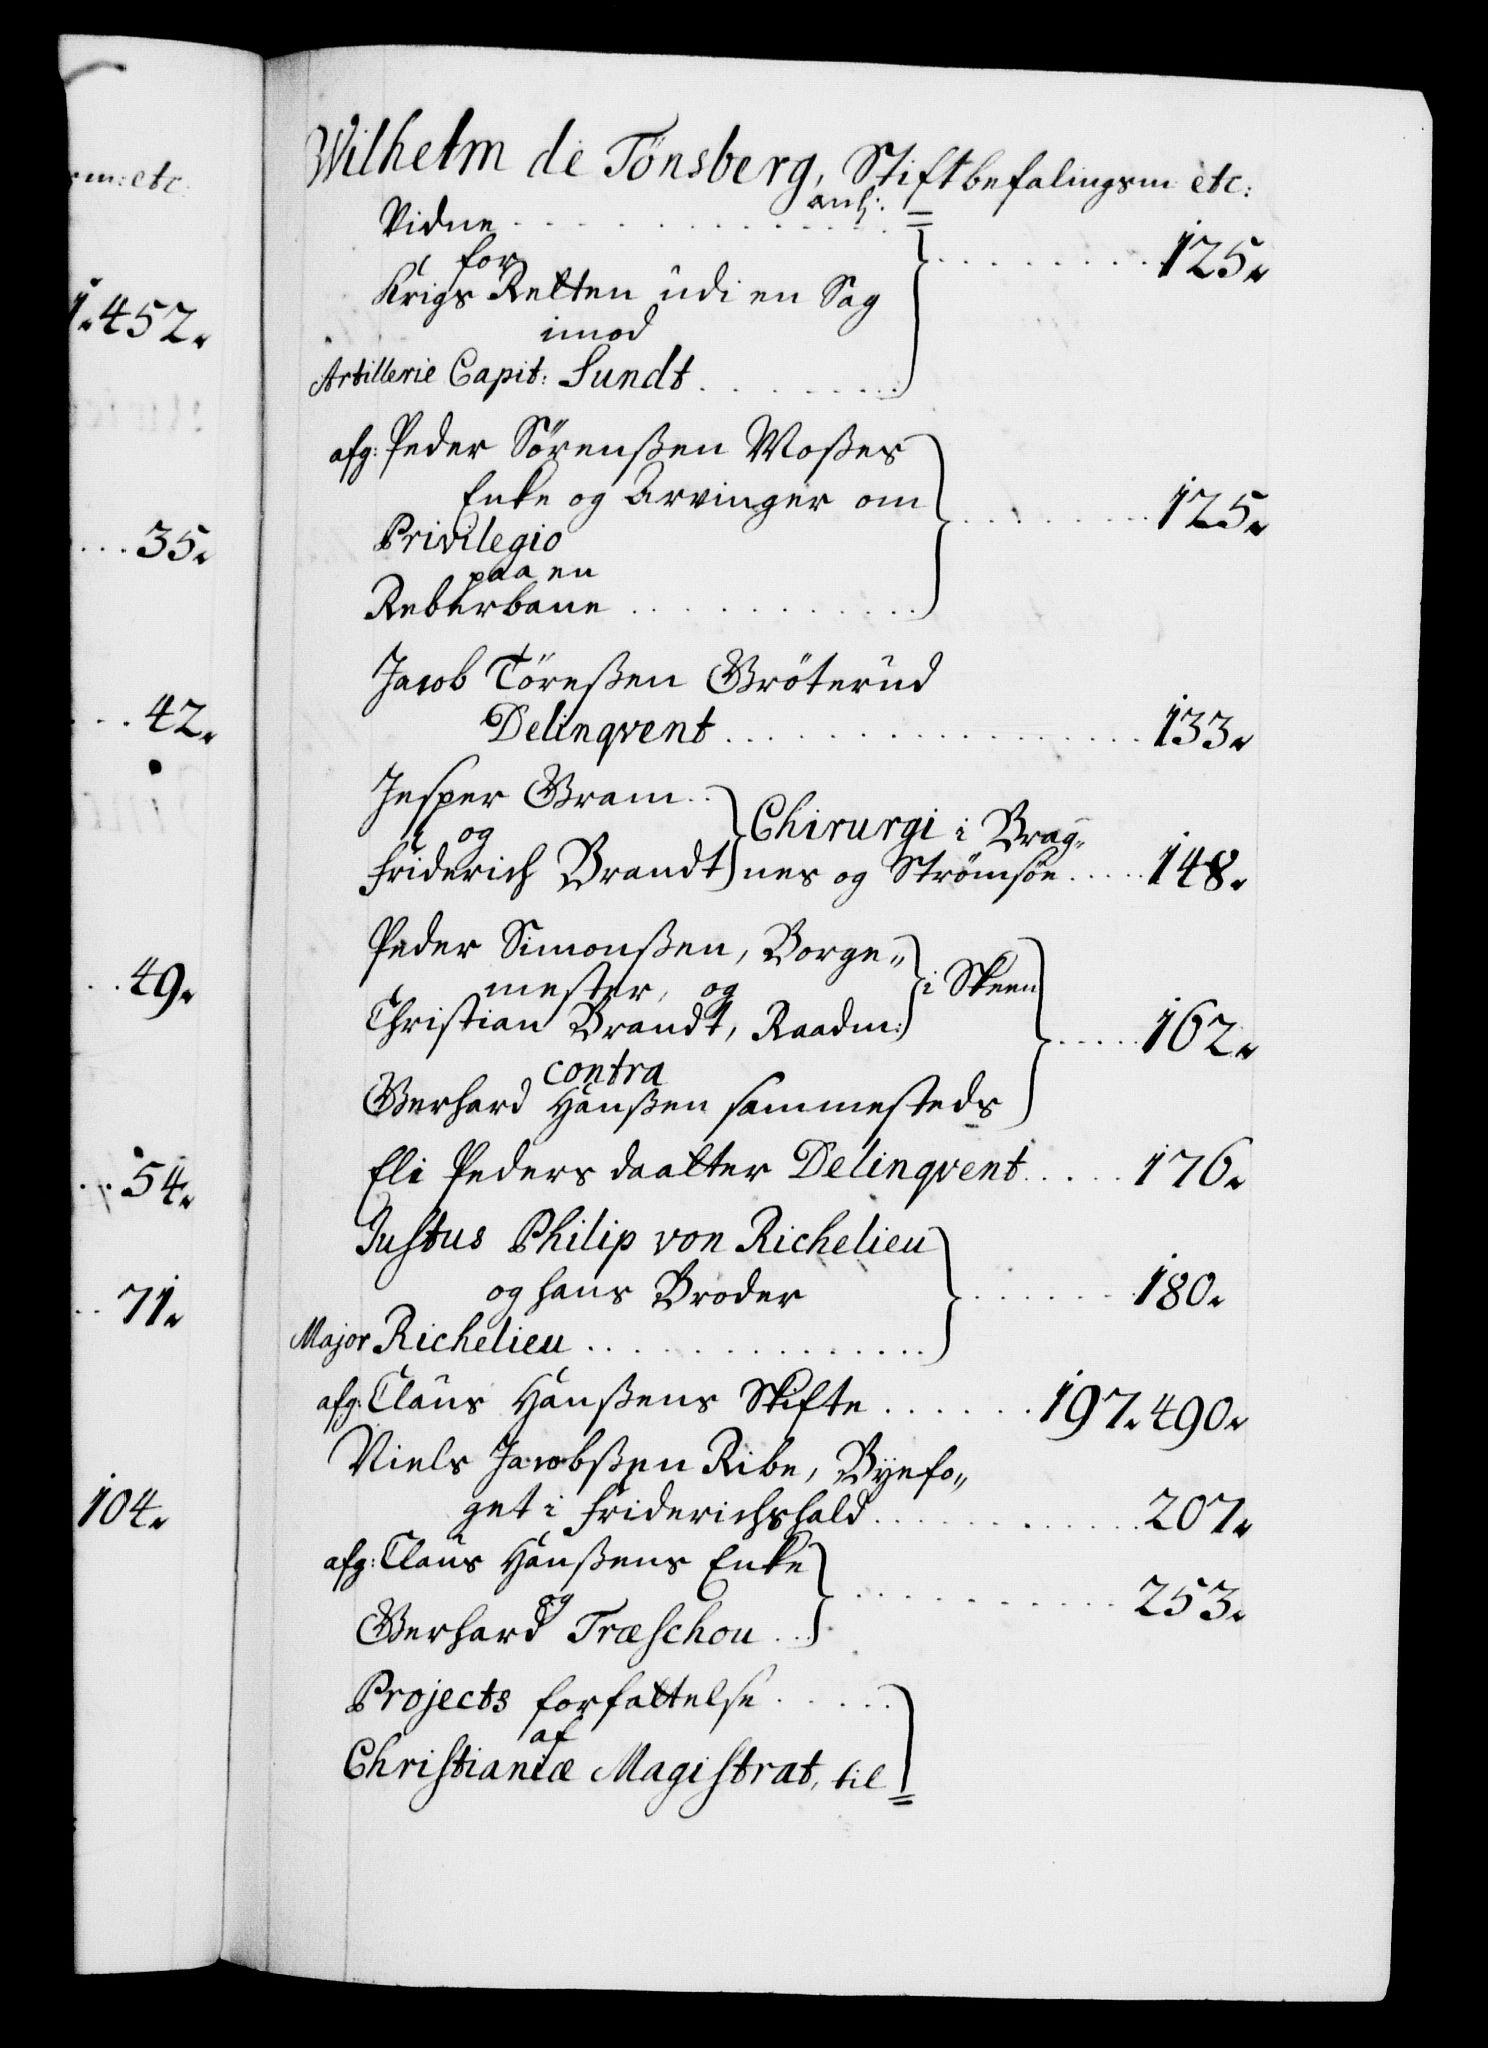 rm: etc.
1. 452.
35.
42.
49.
54.
71.
104.
Wilhelm de Tönsberg, Stiftbefalingsm etc:
anh:
Vidne 125.
for
Krigs Retten udi en Sag
imod
Artillerie Capit: Sundt
afg: Peder Sörenßen Moßes
Enke og Arvinger om 125.
Privilegio
paa en
Reberbane
Jacob Törenßen Gröterud
Delinqvent 133.
Jesper Gram
og Chirurgi i Brag-
Friderich Brandt nes og Strömsöe 148.
Peder Simonßen, Borge-
mester, og i Skeen
Christian Brandt, Raadm: 162.
contra
Gerhard Hanßen sammesteds
Eli Peders daatter Delinqvent 176.
Justus Philip von Richelieu
og hans Broder 180.
Major Richelieu
afg: Claus Hanßens Skifte 197. 490.
Niels Jacobßen Ribe, Byefo-
get i Friderichshald 207.
afg: Claus Hanßens Enke
og 253.
Gerhard Træschou
Projects forfattelse
af
Christianiæ Magistrat, til